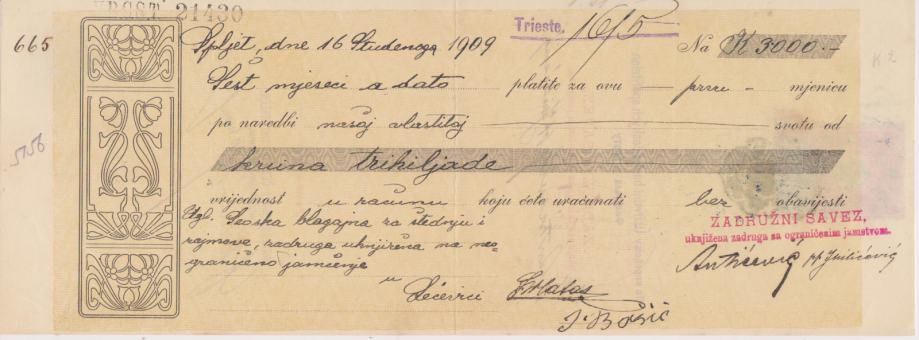 21430
665
Spljet, dne 16 Studenoga 1909
Trieste, 16/5
Na K 3000.-
K 2
Šest mjeseci a dato platite za ovu prvu mjenicu
5156
po naredbi našoj vlastitoj svotu od
kruna trihiljade
vrijednost u računu koju ćete uračunati bez obavijesti
Seoska blagajna za štednju i
zajmove, zadruga uknjižena na neo-
graničeno jamčenje
u Lećevici
ZADRUŽNI SAVEZ,
uknjižena zadruga sa ograničenim jamstvom.